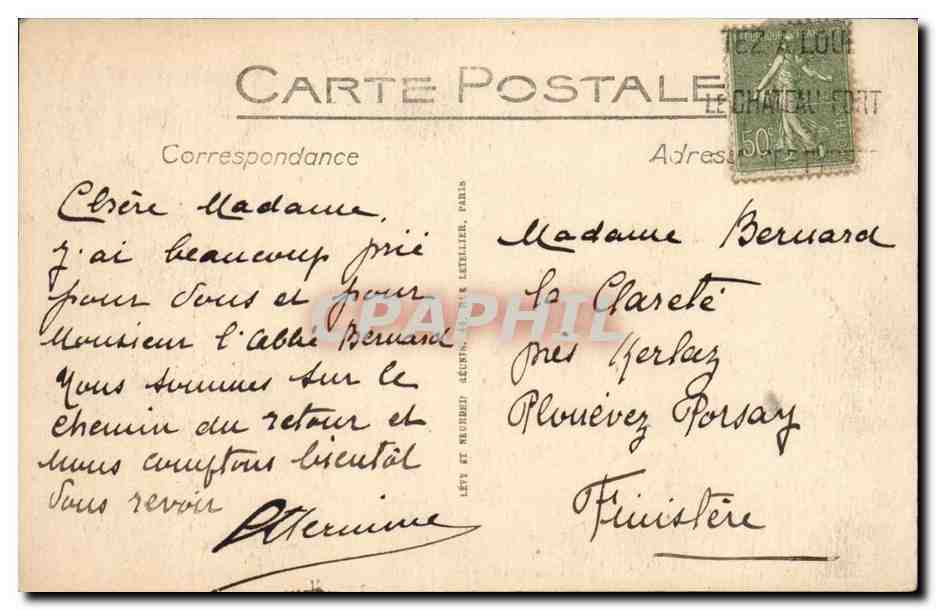 CARTE POSTALE
Correspondance
Chère Madame,
J'ai beaucoup prié
pour vous et pour
Monsieur l'abbé Bernard
Nous sommes sur le
chemin du retour et
nous comptons bientôt
vous revoir
LÉVY ET NEURDEIN RÉUNIS, 44, RUE LETELLIER, PARIS
Adresse
LE CHATEAU FORT
50c
Madame Bernard
la Clareté
près Kerlaz
Plouévez Porsay
Finistère
CPAPHIL